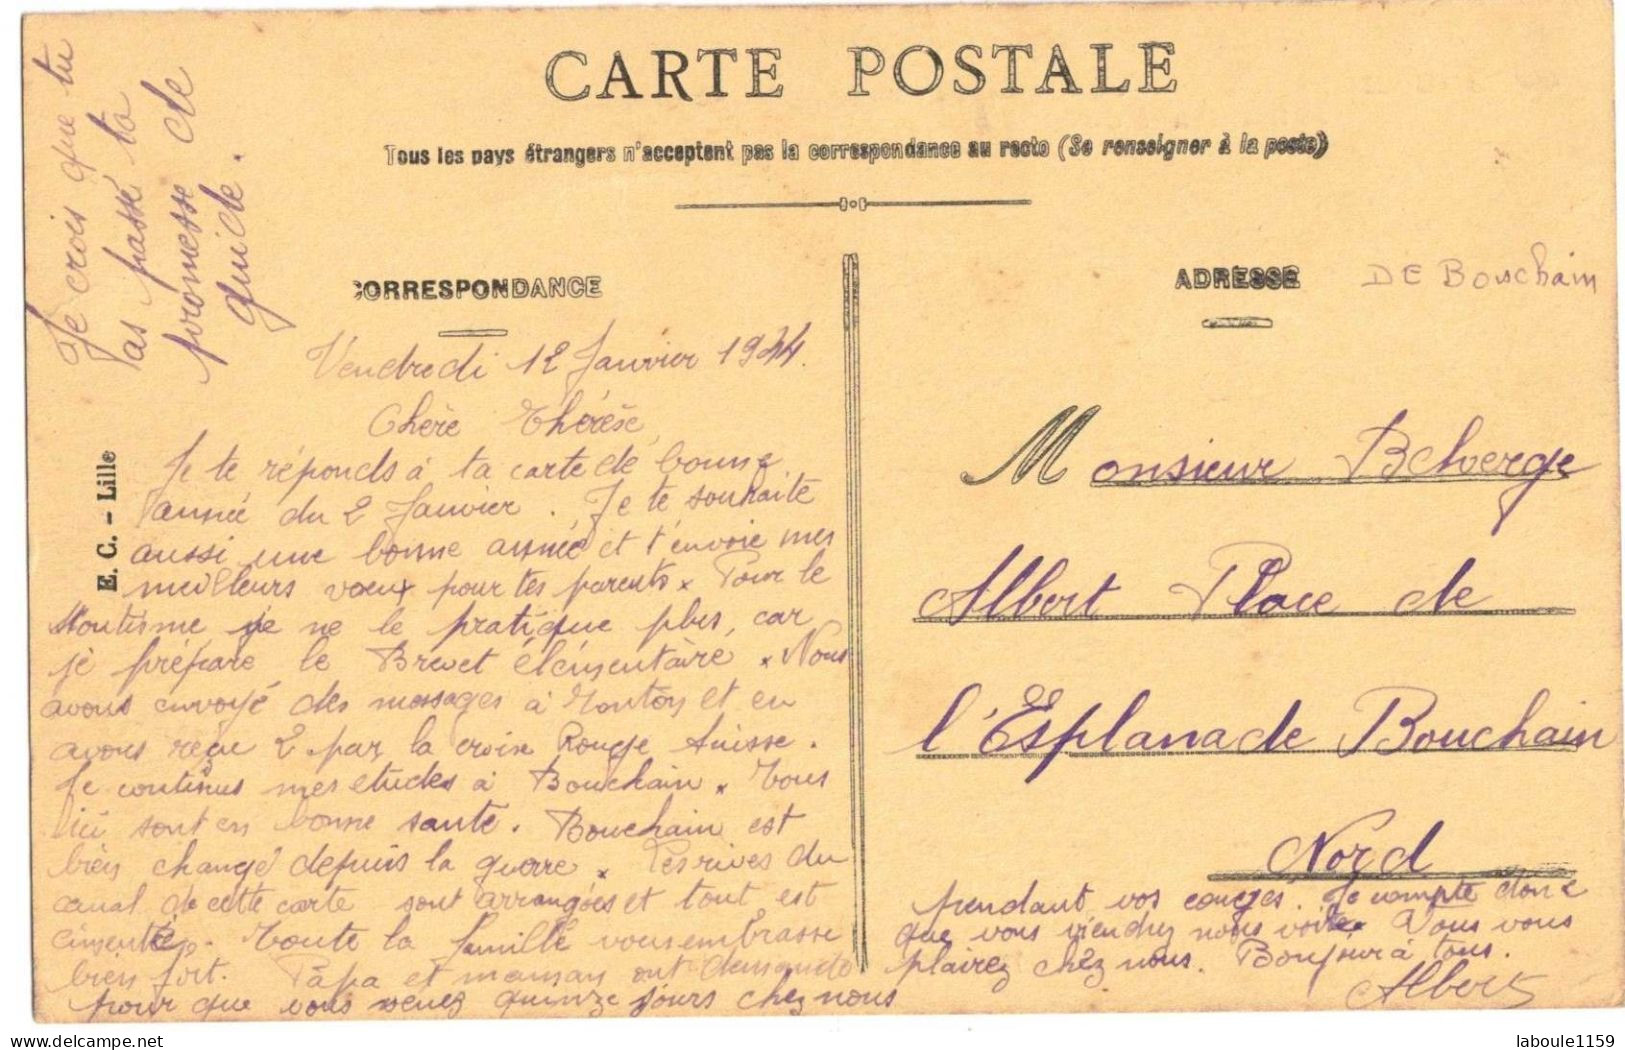 CARTE POSTALE
Tous les pays étrangers n'acceptent pas la correspondance au recto (Se renseigner à la poste)
CORRESPONDANCE
ADRESSE
DE Bouchain
Je crois que tu
as passé ta
promesse de
guide.
E. C. - Lille
Vendredi 12 Janvier 1944.
Chère Thérèse,
Je te réponds à ta carte de bonne
année du 2 Janvier. Je te souhaite
aussi une bonne année et t'envoie mes
meilleurs voeux pour tes parents. Pour le
je ne le pratique plus, car
je prépare le Brevet élémentaire. Nous
avons envoyé des messages à et en
avons reçu 2 par la croix Rouge Suisse.
Je continus mes etudes à Bouchain. Tous
ici sont en bonne santé. Bouchain est
bien changé depuis la guerre. Les rives du
canal de cette carte sont arrangées et tout est
cimenté. Toute la famille vous embrasse
bien fort. Papa et maman ont demandé
pour que vous venez quinze jours chez nous
Monsieur
Albert Place de
l'Esplanade Bouchain
Nord
pendant vos congés. Je compte donc
que vous viendrez nous voir. Vous vous
plairez chez nous. Bonjour à tous.
Albert
laboule1159